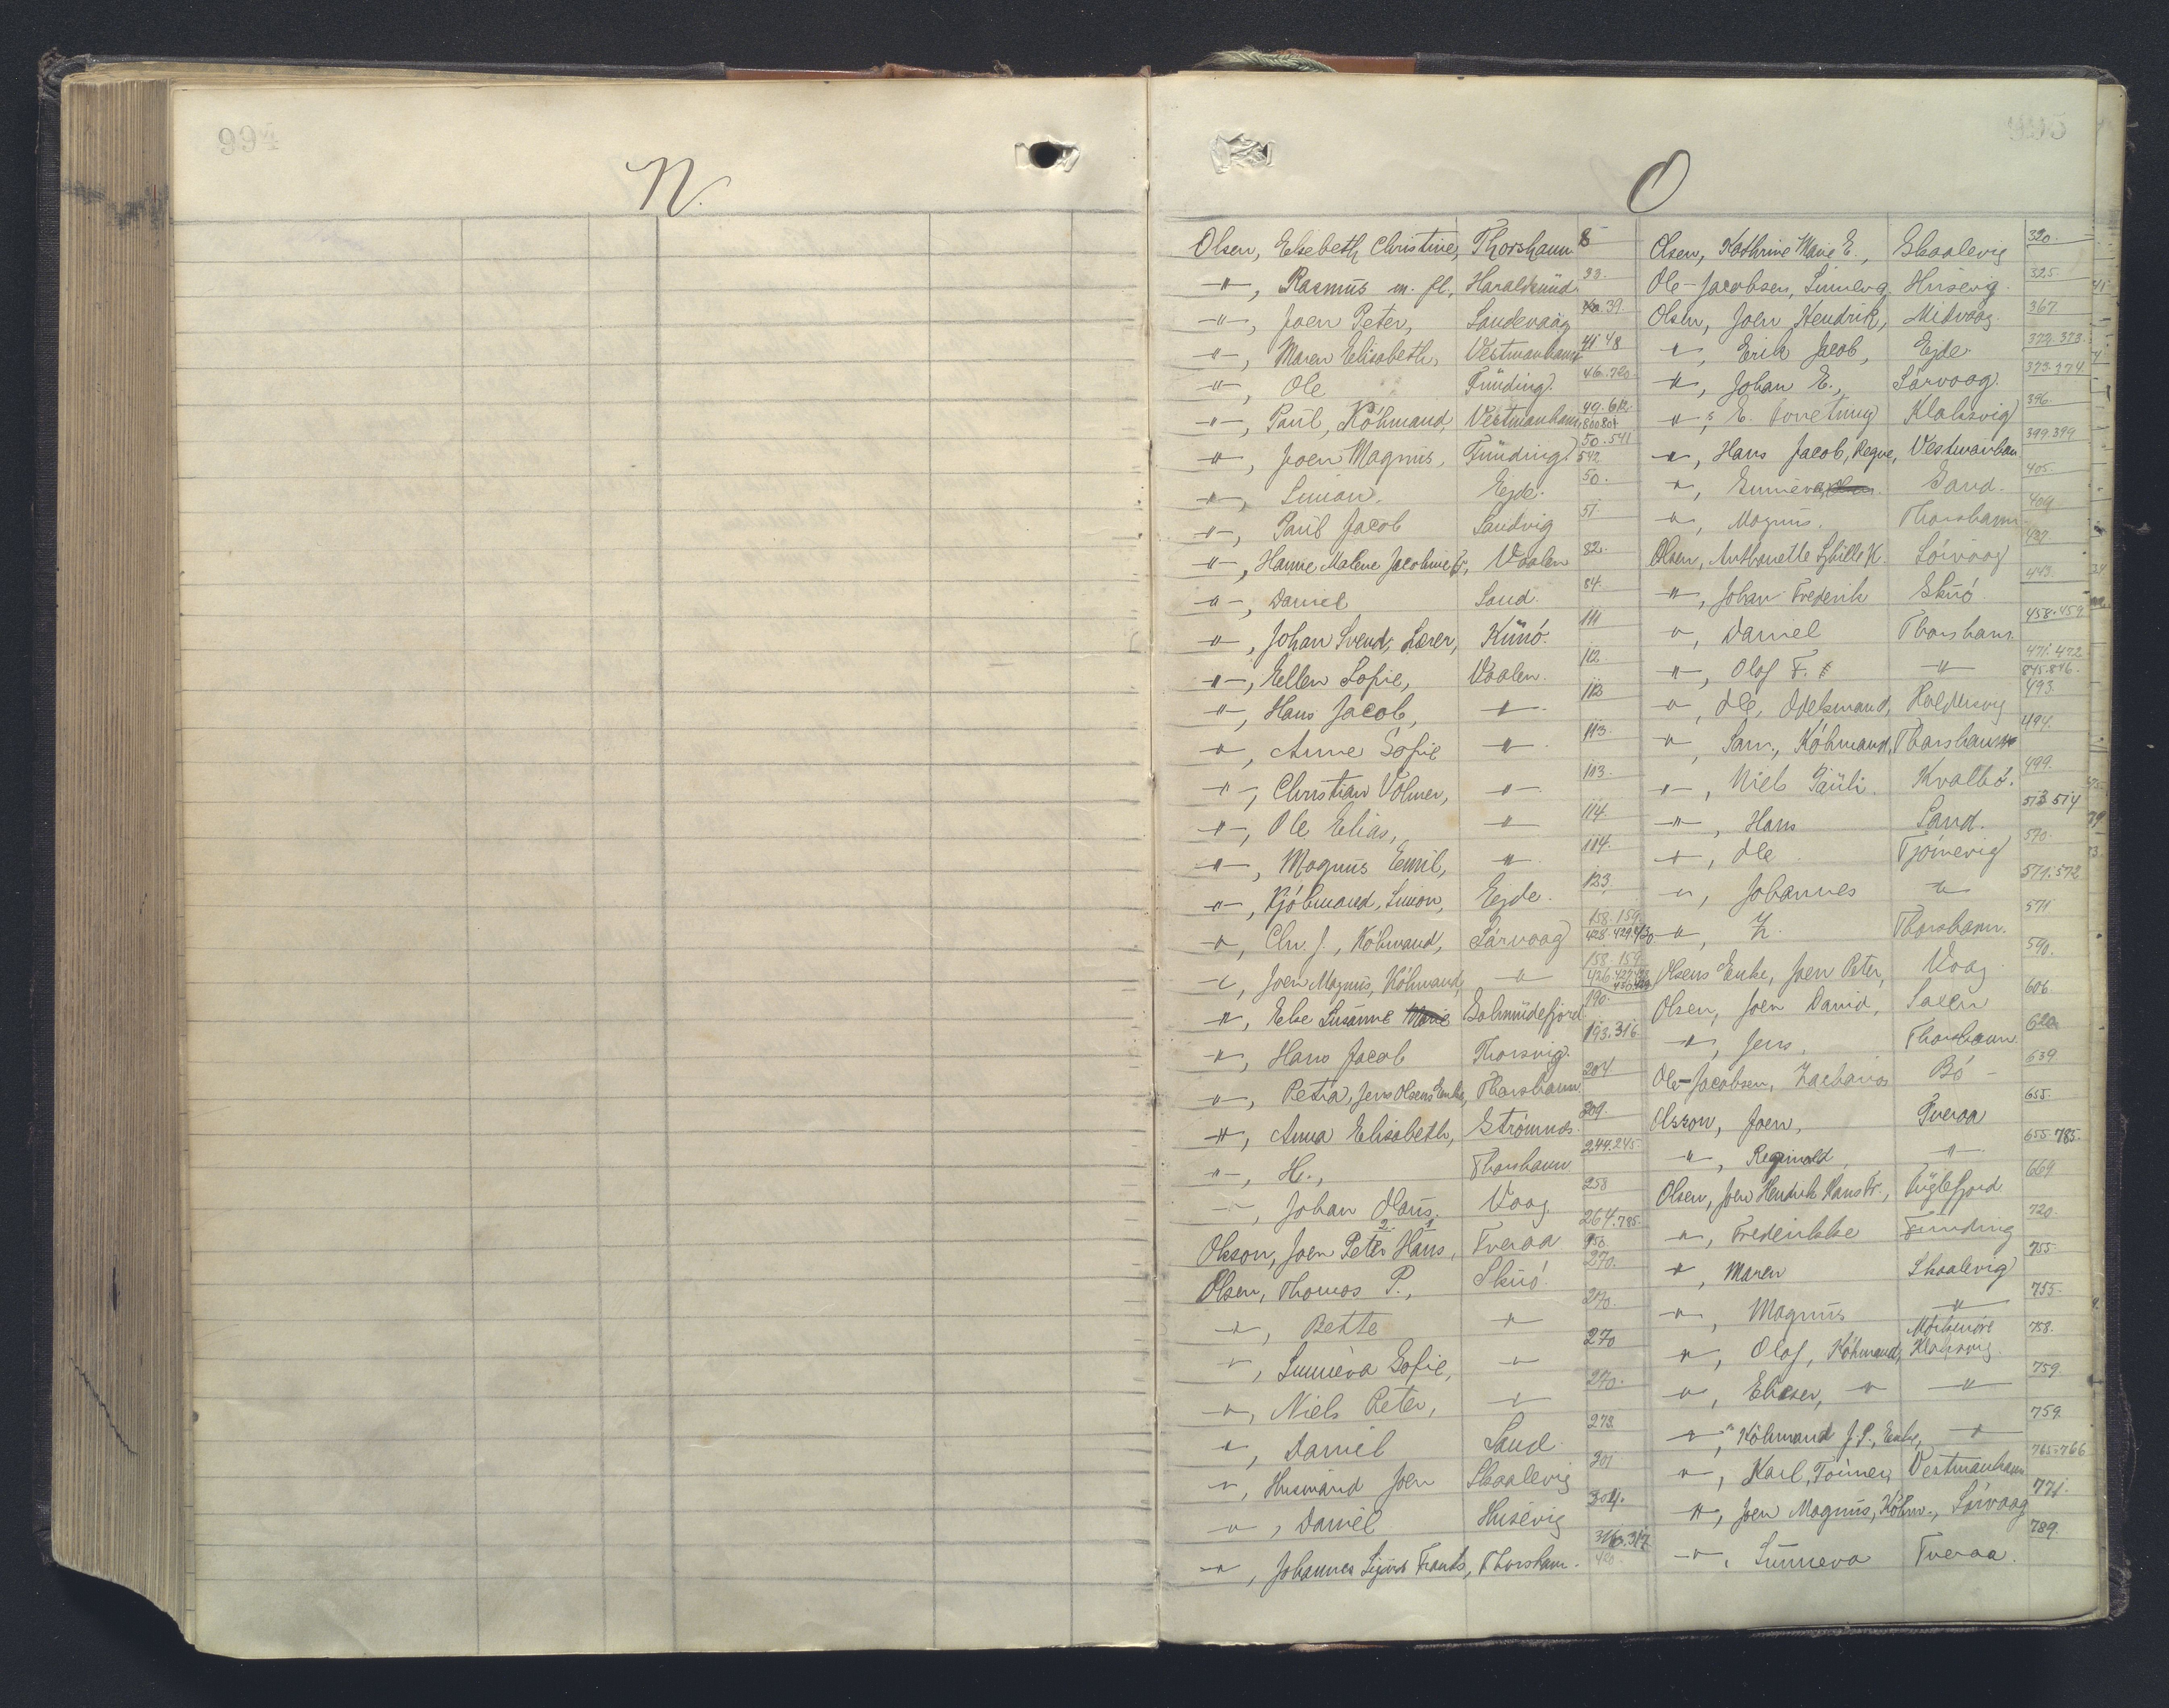 994
N.
995
O
Olsen, Elsebeth Christine, Thorshavn 8
-"-, Rasmus m. fl., Haraldsund. 33.
-"-, Joen Peter, Sandevaag 39.
-"-, Maren Elisabeth, Vestmanhavn 41 48
-"-, Ole Funding. 46. 720.
-"-, Paul, Kóhmand, Vestmanhavn 49. 612.
-"-, Joen Magnus, Funding. 50. 541 542
-"-, Simon. Ejde. 50.
-"-, Paul Jacob Sandvig 51
-"-, Hanne Malene Jacobine E., Vaalen 82.
-"-, Daniel Sand. 84.
-"-, Johan Svend, Lærer, Kunó. 111
-"-, Ellen Sofie, Vaalen. 112
-"-, Hans Jacob, -"-. 112
-"-, Anne Sofie -"-. 113.
-"-, Christian Volmer, -"-. 113.
-"-, Ole Elias, -"- 114
-"-, Magnus Emil, -"-. 114.
-"-, Kjóbmand, Simon, Ejde. 123.
-"-, Chr. J., Kóhmand, Sórvaag 158. 159. 428. 429. 430
-"-, Joen Magnus, Kóhmand, -"- 158. 159.
-"-, Else Susanne Marie Solmundefjord 190.
-"-, Hans Jacob Thorsvig. 193. 316
-"-, Petra, Jens Olsens Enke, Thorshavn 204
-"-, Anna Elisabeth, Strömnæs. 209.
-"-, H., Thorshavn 244. 245
-"-, Johan Hans. Vaag 258
Olsson, Joen Peter Hans, Tveraa 264. 785.
Olsen, Thomas P., Skuó. 270.
-"-, Bette -"- 270.
-"-, Sunneva Sofie, -"- 270
-"-, Niels Peter, -"- 270.
-"-, Daniel Sand. 273.
-"-, Husmand Joen Skaalevig 301
-"-, Daniel Husevig 304.
-"-, Johannes Sigurd Frants, Thorshavn. 316. 317 420.
Olsen, Kathrine Marie E., Skaalevig 320.
Ole-Jacobsen, Sunneva Husevig. 325
Olsen, Joen Hendrik, Midvaag. 367
-"-, Erik Jacob, Ejde. 372. 373.
-"-, Johan E., Sórvaag. 373. 374
-"-, E. Klaksvig 396.
-"-, Hans Jacob, Vestmanhavn 399. 399
-"-, Sunneva Sand. 405.
-"-, Magnus. Thorshavn. 409
Olsen, Anthonette Sybille K. Sórvaag 427
-"-, Johan Frederik Skuó. 443.
-"-, Daniel Thorshavn. 458. 459
-"-, Olaf F. -"- 471. 472 845. 846.
-"-, Ole, Odelsmand, Haldersvig 493.
-"-, Sam., Kóhmand, Thorshavn 494.
-"-, Niels Pauli. Kvalbó. 499.
-"-, Hans Sand. 513 514
-"-, Ole Tjórnevig 570.
-"-, Johannes -"- 571. 572
-"-, Z. Thorshavn. 571
Olsens Enke, Joen Peter, Vaag. 590.
Olsen, Joen David, Saxen 606
-"-, Jens, Thorshavn. 620
Ole-Jacobsen, Zacharias Bó - 639.
Olsson, Joen, Tveraa 655.
-"-, Reginald -"-. 655. 785.
Olsen, Joen Hendrik Hans Fr., Fuglefjord. 669
-"-, Frederikke Funding 720.
-"-, Maren Skaalevig 755.
-"-, Magnus -"- 755.
-"-, Olaf, Kóhmand, Klaksvig. 758.
-"-, Elieser, -"- -"- 759.
-"-, Kóhmand J. P., Enke, -"- 759.
-"-, Karl, Tómrer, Vestmanhavn 765. 766
-"-, Joen Magnus, Kóhm., Sórvaag 771.
-"-, Sunneva Tveraa. 789.